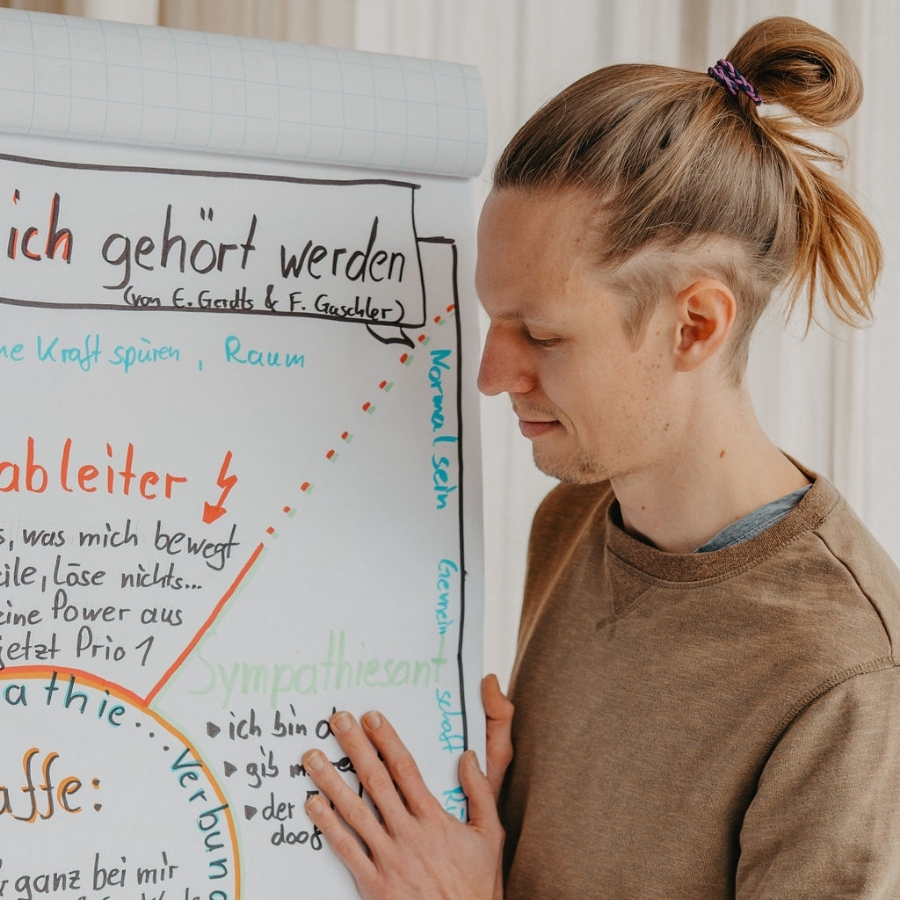 ich gehört werden
(von E. Gerdts & F. Gaschler)
ne Kraft spüren, Raum
Normal sein
Gemeinschaft
ableiter
s, was mich bewegt
eile, löse nichts...
eine Power aus
jetzt Prio 1
Sympathiesant
▸ ich bin d
▸ gib m
▸ der
doof
athie... Verbund
affe:
ganz bei mir